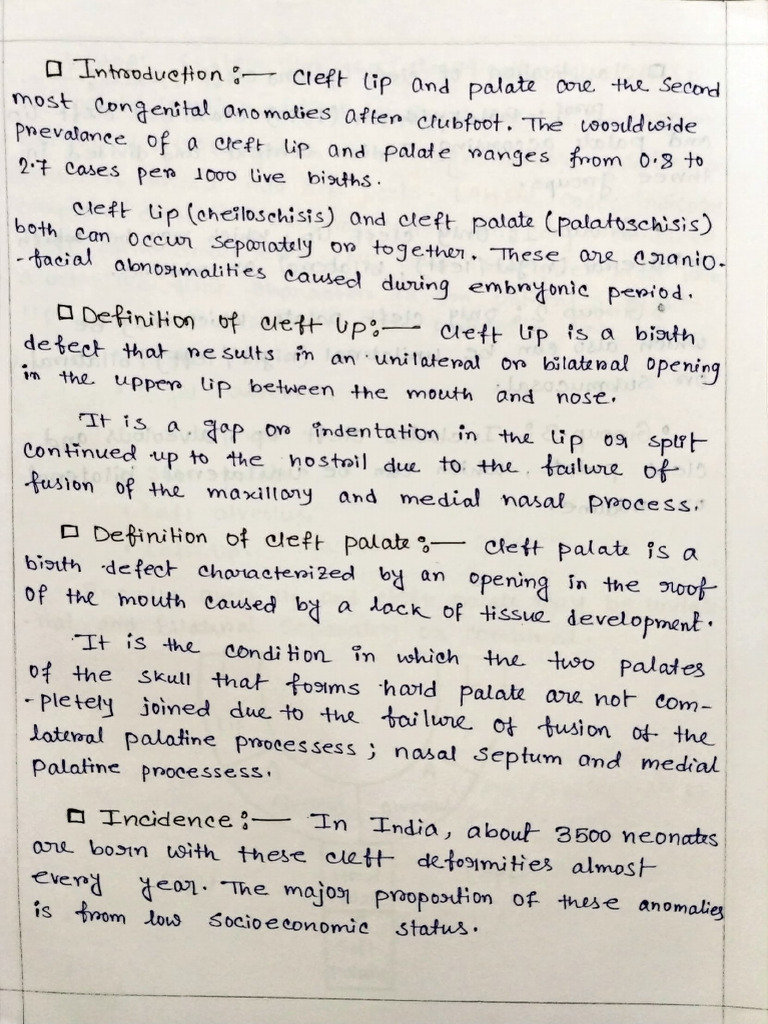 □ Introduction :— Cleft lip and palate are the second
most congenital anomalies after clubfoot. The wooldwide
prevalance of a cleft lip and palate ranges from 0.8 to
2.7 cases per 1000 live births.
Cleft lip (cheiloschisis) and cleft palate (palatoschisis)
both can occur separately or together. These are cranio-
-facial abnormalities caused during embryonic period.
□ Definition of cleft lip :— Cleft lip is a birth
defect that results in an unilateral or bilateral opening
in the upper lip between the mouth and nose.
It is a gap or indentation in the lip or split
continued up to the nostril due to the failure of
fusion of the maxillary and medial nasal process.
□ Definition of cleft palate :— Cleft palate is a
birth defect characterized by an opening in the roof
of the mouth caused by a lack of tissue development.
It is the condition in which the two palates
of the skull that forms hard palate are not com-
-pletely joined due to the failure of fusion of the
lateral palatine processess ; nasal septum and medial
palatine processess.
□ Incidence :— In India, about 3500 neonates
are born with these cleft deformities almost
every year. The major proportion of these anomalies
is from low socioeconomic status.